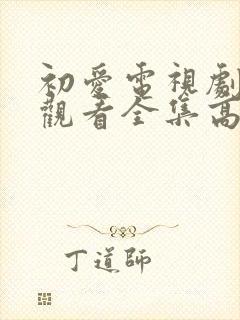 初愛電視劇
觀看全集高
丁道師